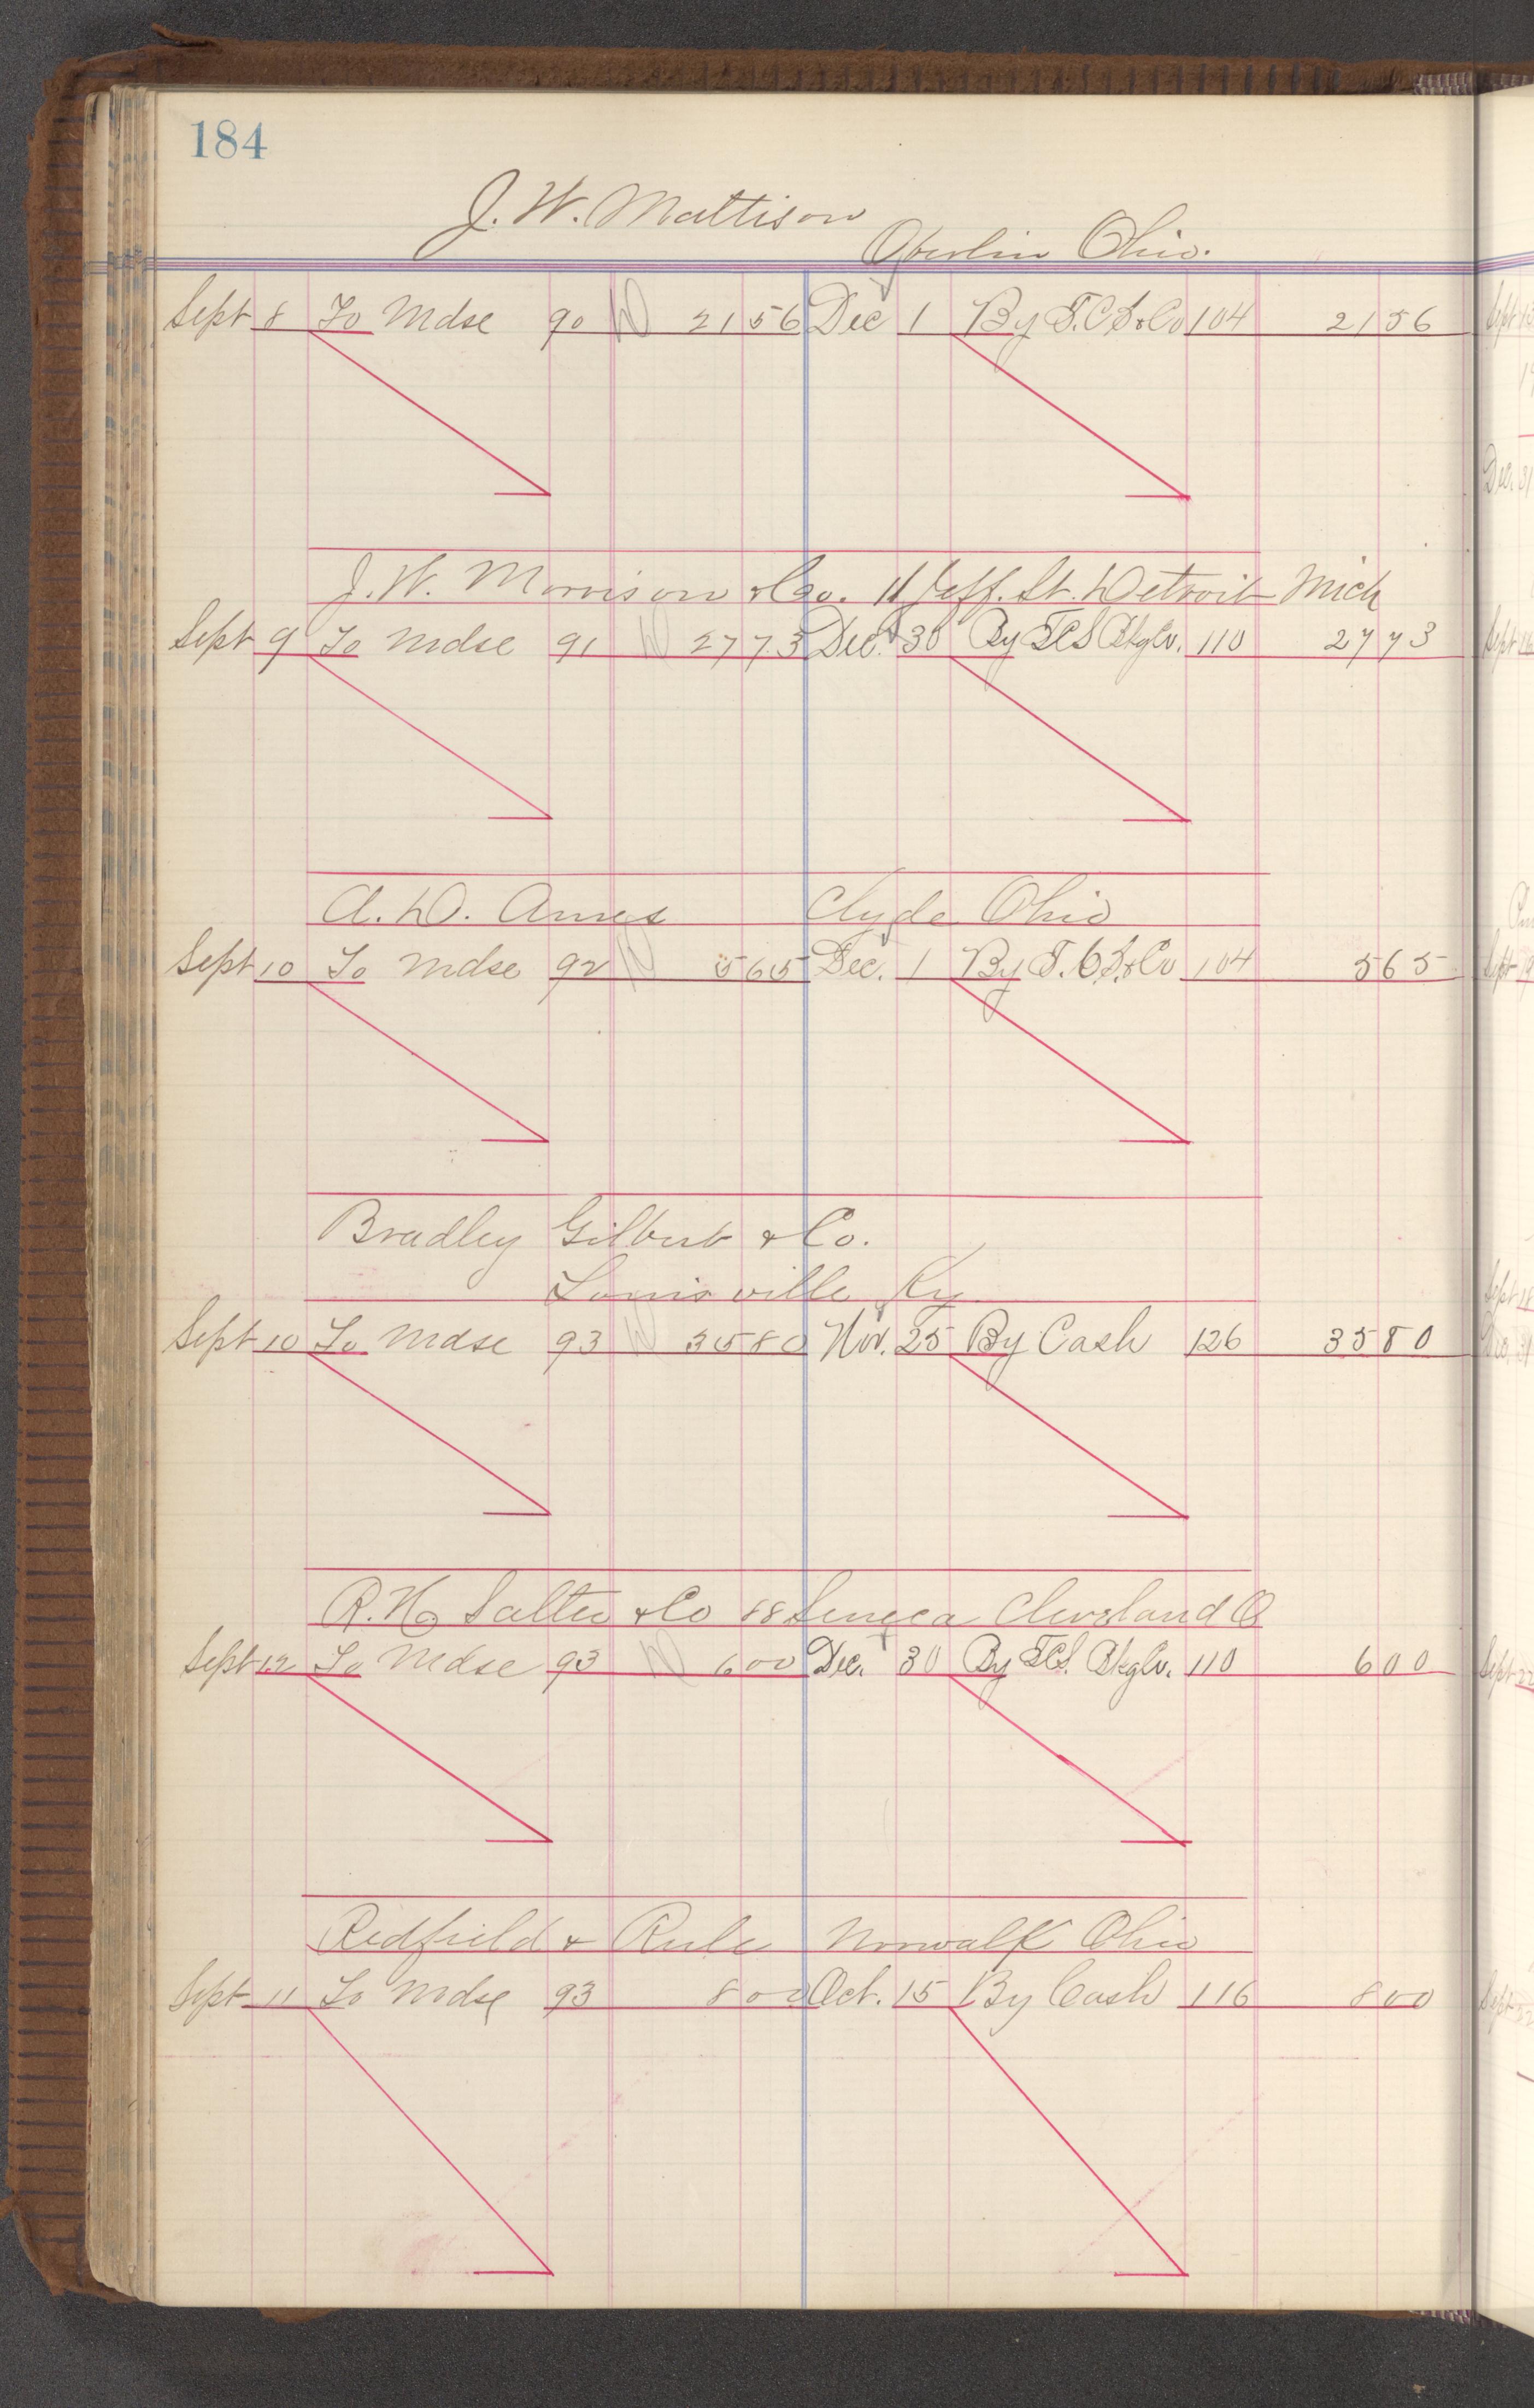 184
J. W. Mattison
Oberlin Ohio.
Sept 8 To Mdse 90 21 56 Dec 1 By T.C.S. & Co 104 21 56
J. W. Morrison & Co. 11 Jeff. St. Detroit Mich
Sept 9 To Mdse 91 27 73 Dec. 30 By TCS Bkg Co. 110 27 73
A. D. Ames Clyde Ohio
Sept 10 To Mdse 92 5 65 Dec. 1 By T.C.S. & Co 104 5 65
Bradley Gilbert & Co.
Louisville Ky
Sept 10 To Mdse 93 35 80 Nov. 25 By Cash 126 35 80
R. H. Salter & Co 88 Seneca Cleveland O
Sept 12 To Mdse 93 6 00 Dec. 30 By TCS. Bkg Co. 110 6 00
Redfield & Rule Norwalk Ohio
Sept 11 To Mdse 93 8 00 Oct. 15 By Cash 116 8 00